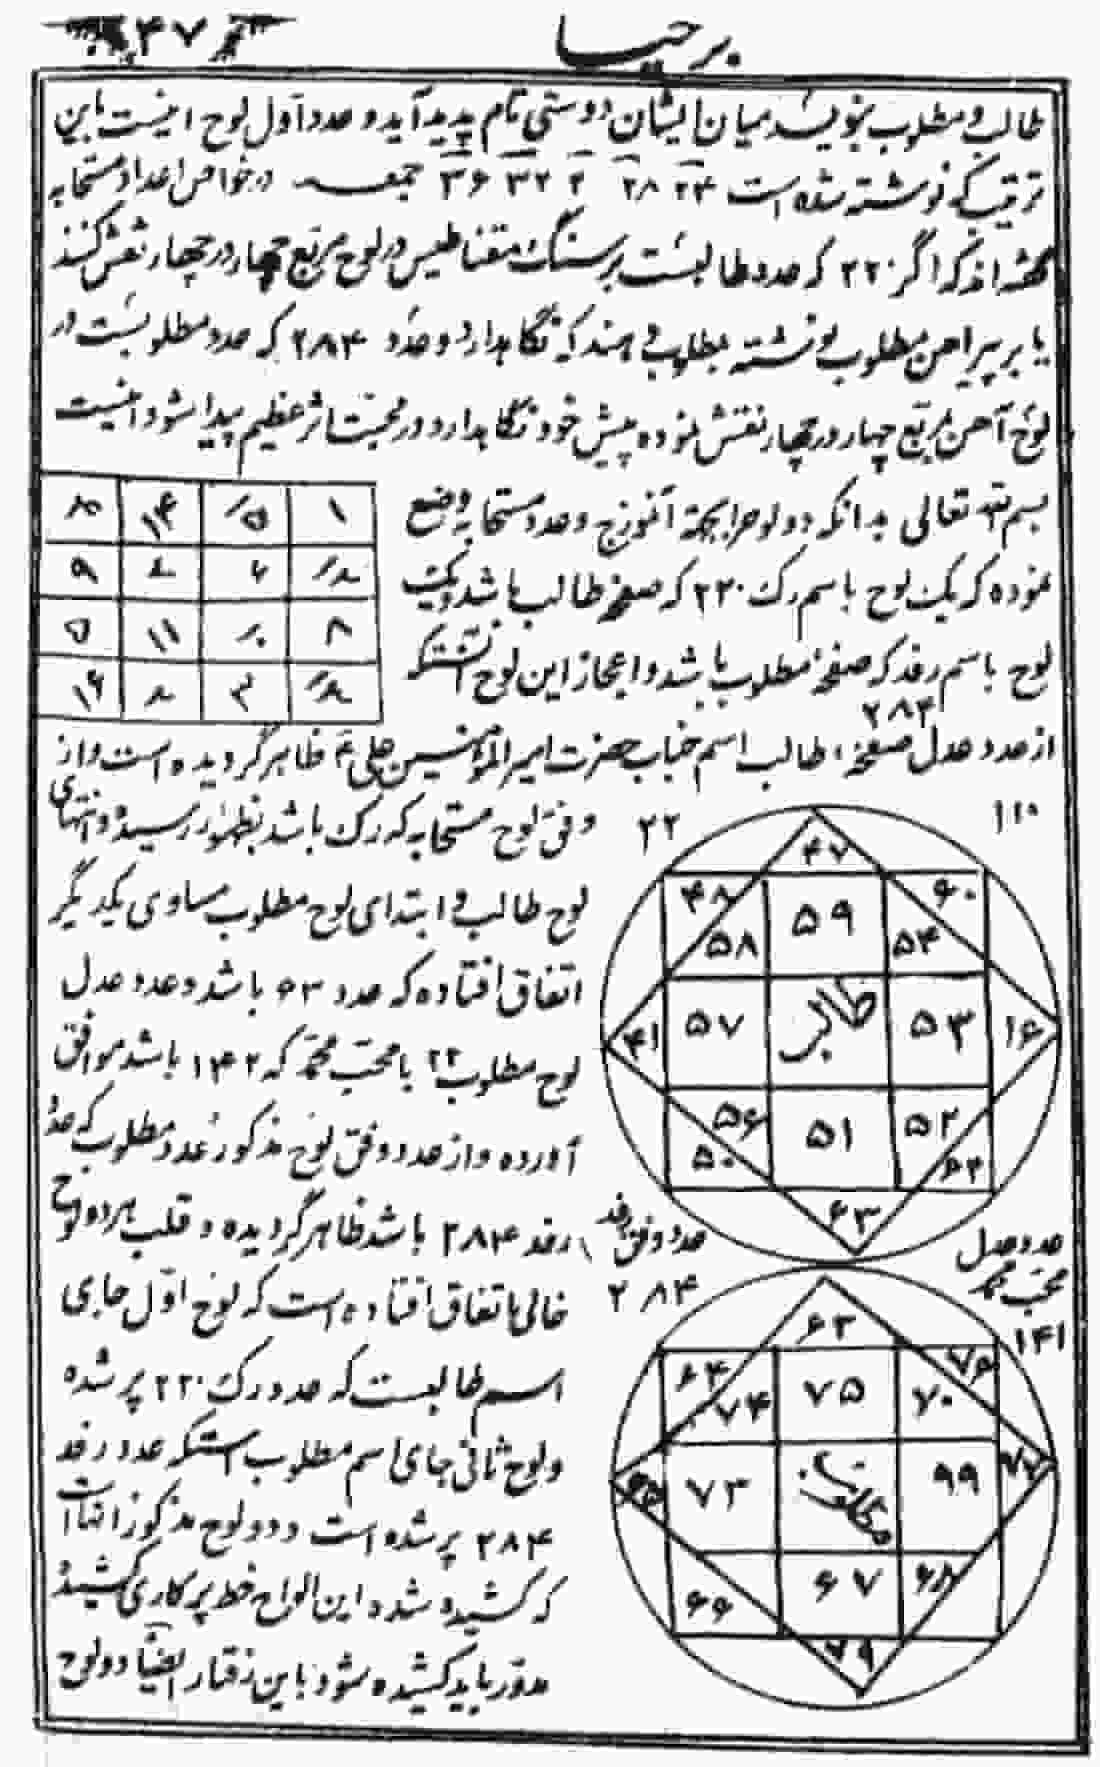 برحیسا
۴۷
طالب و مطلوب بنویسد میان ایشان دوستی تام پدید آید و عدد اول لوح اینست باین
ترتیب که نوشته شده است ۲۴ ۲۸ ۲ ۳۲ ۳۶ جمعـــه در خواص اعداد متحابه
گفته اند که اگر ۲۲۰ که عدد طالبست بر سنگ مقناطیس در لوح مربع چهار در چهار نقش کنند
یا بر پیراهن مطلوب نوشته بطلوب دهند که نگاهدارد و عدد ۲۸۴ که عدد مطلوبست در
لوح آهن مربع چهار در چهار نقش نموده پیش خود نگاهدارد در محبت اثر عظیم پیدا شود اینست
بسم الله تعالی بدانکه دو لوح را بجهة آنموزج و عدد متحابه وضع
نموده که یک لوح باسم رک ۲۲۰ که صفحه طالب باشد و یک
لوح باسم رفد که صفحه مطلوب باشد و اعجاز این لوح آنستکه
۲۸۴
۱۴
۱
۹
۵
۱۱
۸
۱۶
۳
از عدد عدل صفحه طالب اسم جناب حضرت امیر المؤمنین علی ع ظاهر گردیده است و از
وفق لوح متحابه که رک باشد بظهور رسیده و انتهای
لوح طالب و ابتدای لوح مطلوب مساوی یکدیگر
اتفاق افتاده که عدد ۶۳ باشد و عدد عدل
لوح مطلوب با محب محمد که ۱۴۲ باشد موافق
آورده و از عدد وفق لوح مذکور عدد مطلوب که عدد
رفد ۲۸۴ باشد ظاهر گردیده و قلب هر دو لوح
خالی باتفاق افتاده است که لوح اول جای
اسم طالبست که عدد رک ۲۲۰ پر شده
و لوح ثانی جای اسم مطلوب استکه عدد رفد
۲۸۴ پر شده است و دو لوح مذکور اینست
که کشیده شده این الواح خط پرکاری کشیده
مدور باید کشیده شود باین رفتار ایضاً دو لوح
۱۱۰
۲۲
۴۷
۴۸
۶۰
۵۸
۵۹
۵۴
۴۱
۵۷
طالب
۵۳
۱۶
۵۶
۵۱
۵۲
۵۰
۶۲
۶۳
عدد وفق رفد
۲۸۴
عدد عدل
محب محمد
۱۴۱
۶۳
۶۴
۷۶
۷۴
۷۵
۷۰
۶۵
۷۳
مطلوب
۹۹
۷۷
۶۶
۶۷
۶۸
۷۹